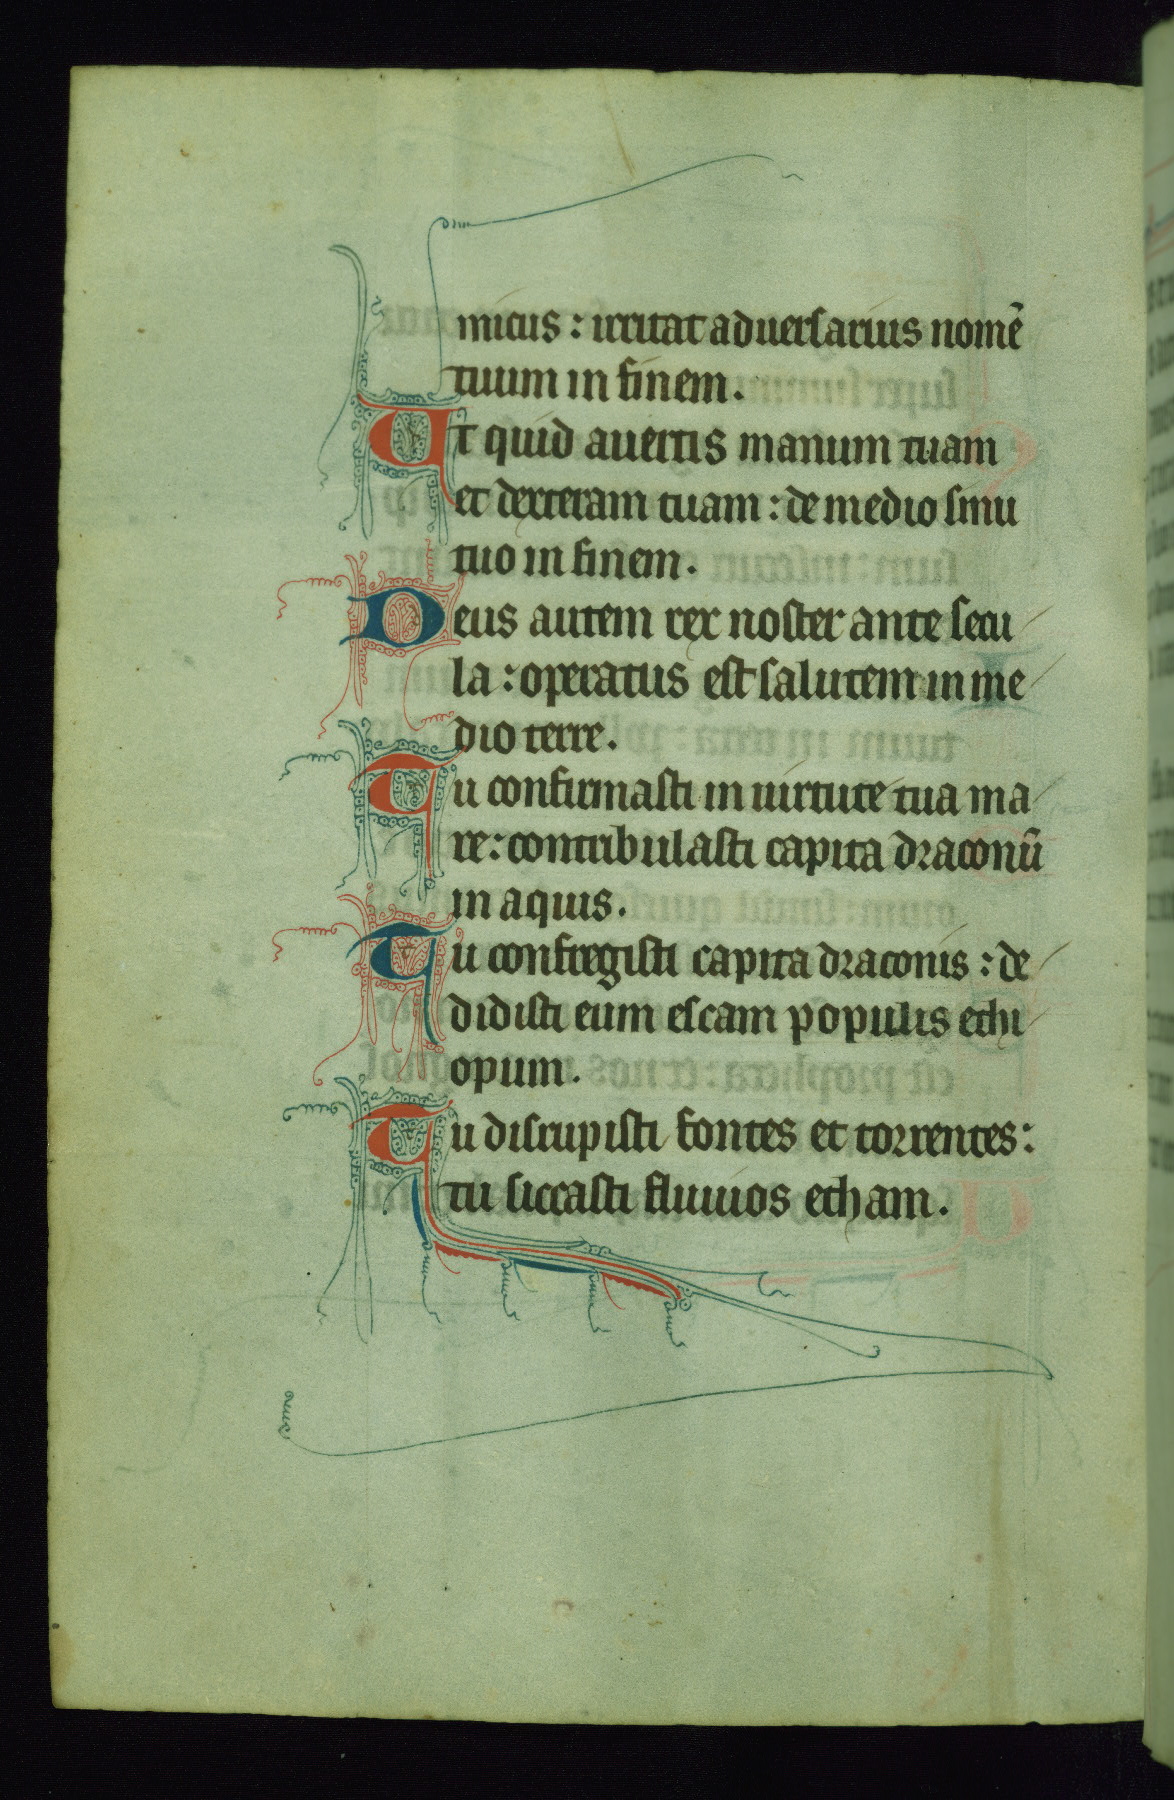 micus : irritat aduersarius nomē
tuum in finem.
Ut quid auertis manum tuam
et dexteram tuam : de medio sinu
tuo in finem.
Deus autem rex noster ante secu
la : operatus est salutem in me
dio terre.
Tu confirmasti in uirtute tua ma
re : contribulasti capita draconū
in aquis.
Tu confregisti capita draconis : de
didisti eum escam populis ethi
opum.
Tu disrupisti fontes et torrentes :
tu siccasti fluuios etham.